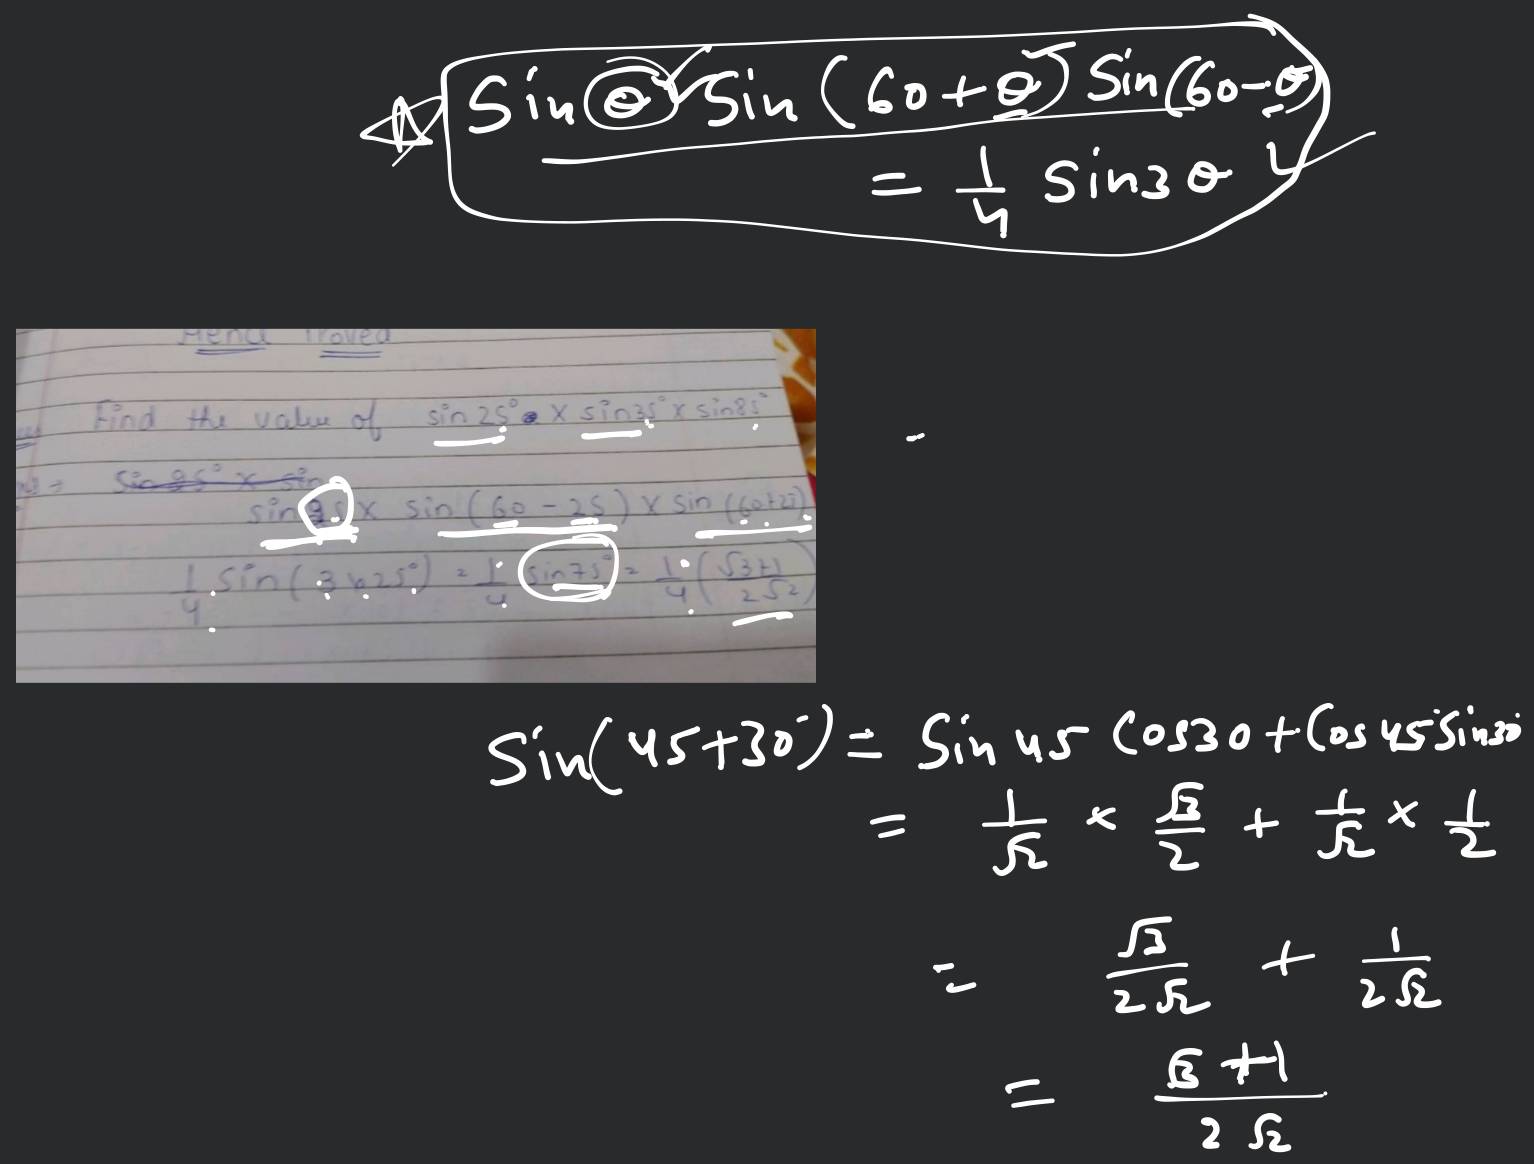 Sin θ Sin (60+θ) Sin(60-θ)
= 1/4 Sin3θ
Hence Proved
Find the value of sin 25° × sin35° × sin85°
sin 25 × sin (60 - 25) × sin (60+25)
1/4 sin(3×25°) = 1/4 sin75° = 1/4 (√3+1 / 2√2)
Sin(45+30°) = Sin 45 Cos30 + Cos 45 Sin30
= 1/√2 × √3/2 + 1/√2 × 1/2
= √3/2√2 + 1/2√2
= √3+1 / 2√2